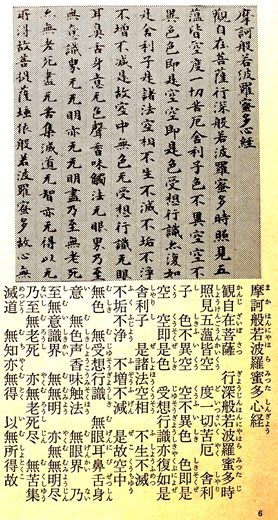 摩訶般若波羅蜜多心経
觀自在菩薩行深般若波羅蜜多時照見五
蘊皆空度一切苦厄舍利子色不異空空不
異色色即是空空即是色受想行識亦復如
是舍利子是諸法空相不生不滅不垢不淨
不增不減是故空中無色无受想行識无眼
耳鼻舌身意无色聲香味觸法无眼界乃至
無意識界无无明亦无无明盡乃至无老死
亦无老死盡无苦集滅道无智亦无得以无
所得故菩提薩埵依般若波羅蜜多故心
摩訶般若波羅蜜多心経
観自在菩薩 行深般若波羅蜜多時
照見五蘊皆空 度一切苦厄 舎利
子 色不異空 空不異色 色即是
空 空即是色 受想行識亦復如是
舎利子 是諸法空相 不生不滅
不垢不浄 不増不減 是故空中
無色 無受想行識 無眼耳鼻舌身
意 無色声香味触法 無眼界 乃
至無意識界 無無明 亦無無明尽
乃至無老死 亦無老死尽 無苦集
滅道 無知亦無得 以無所得故
6